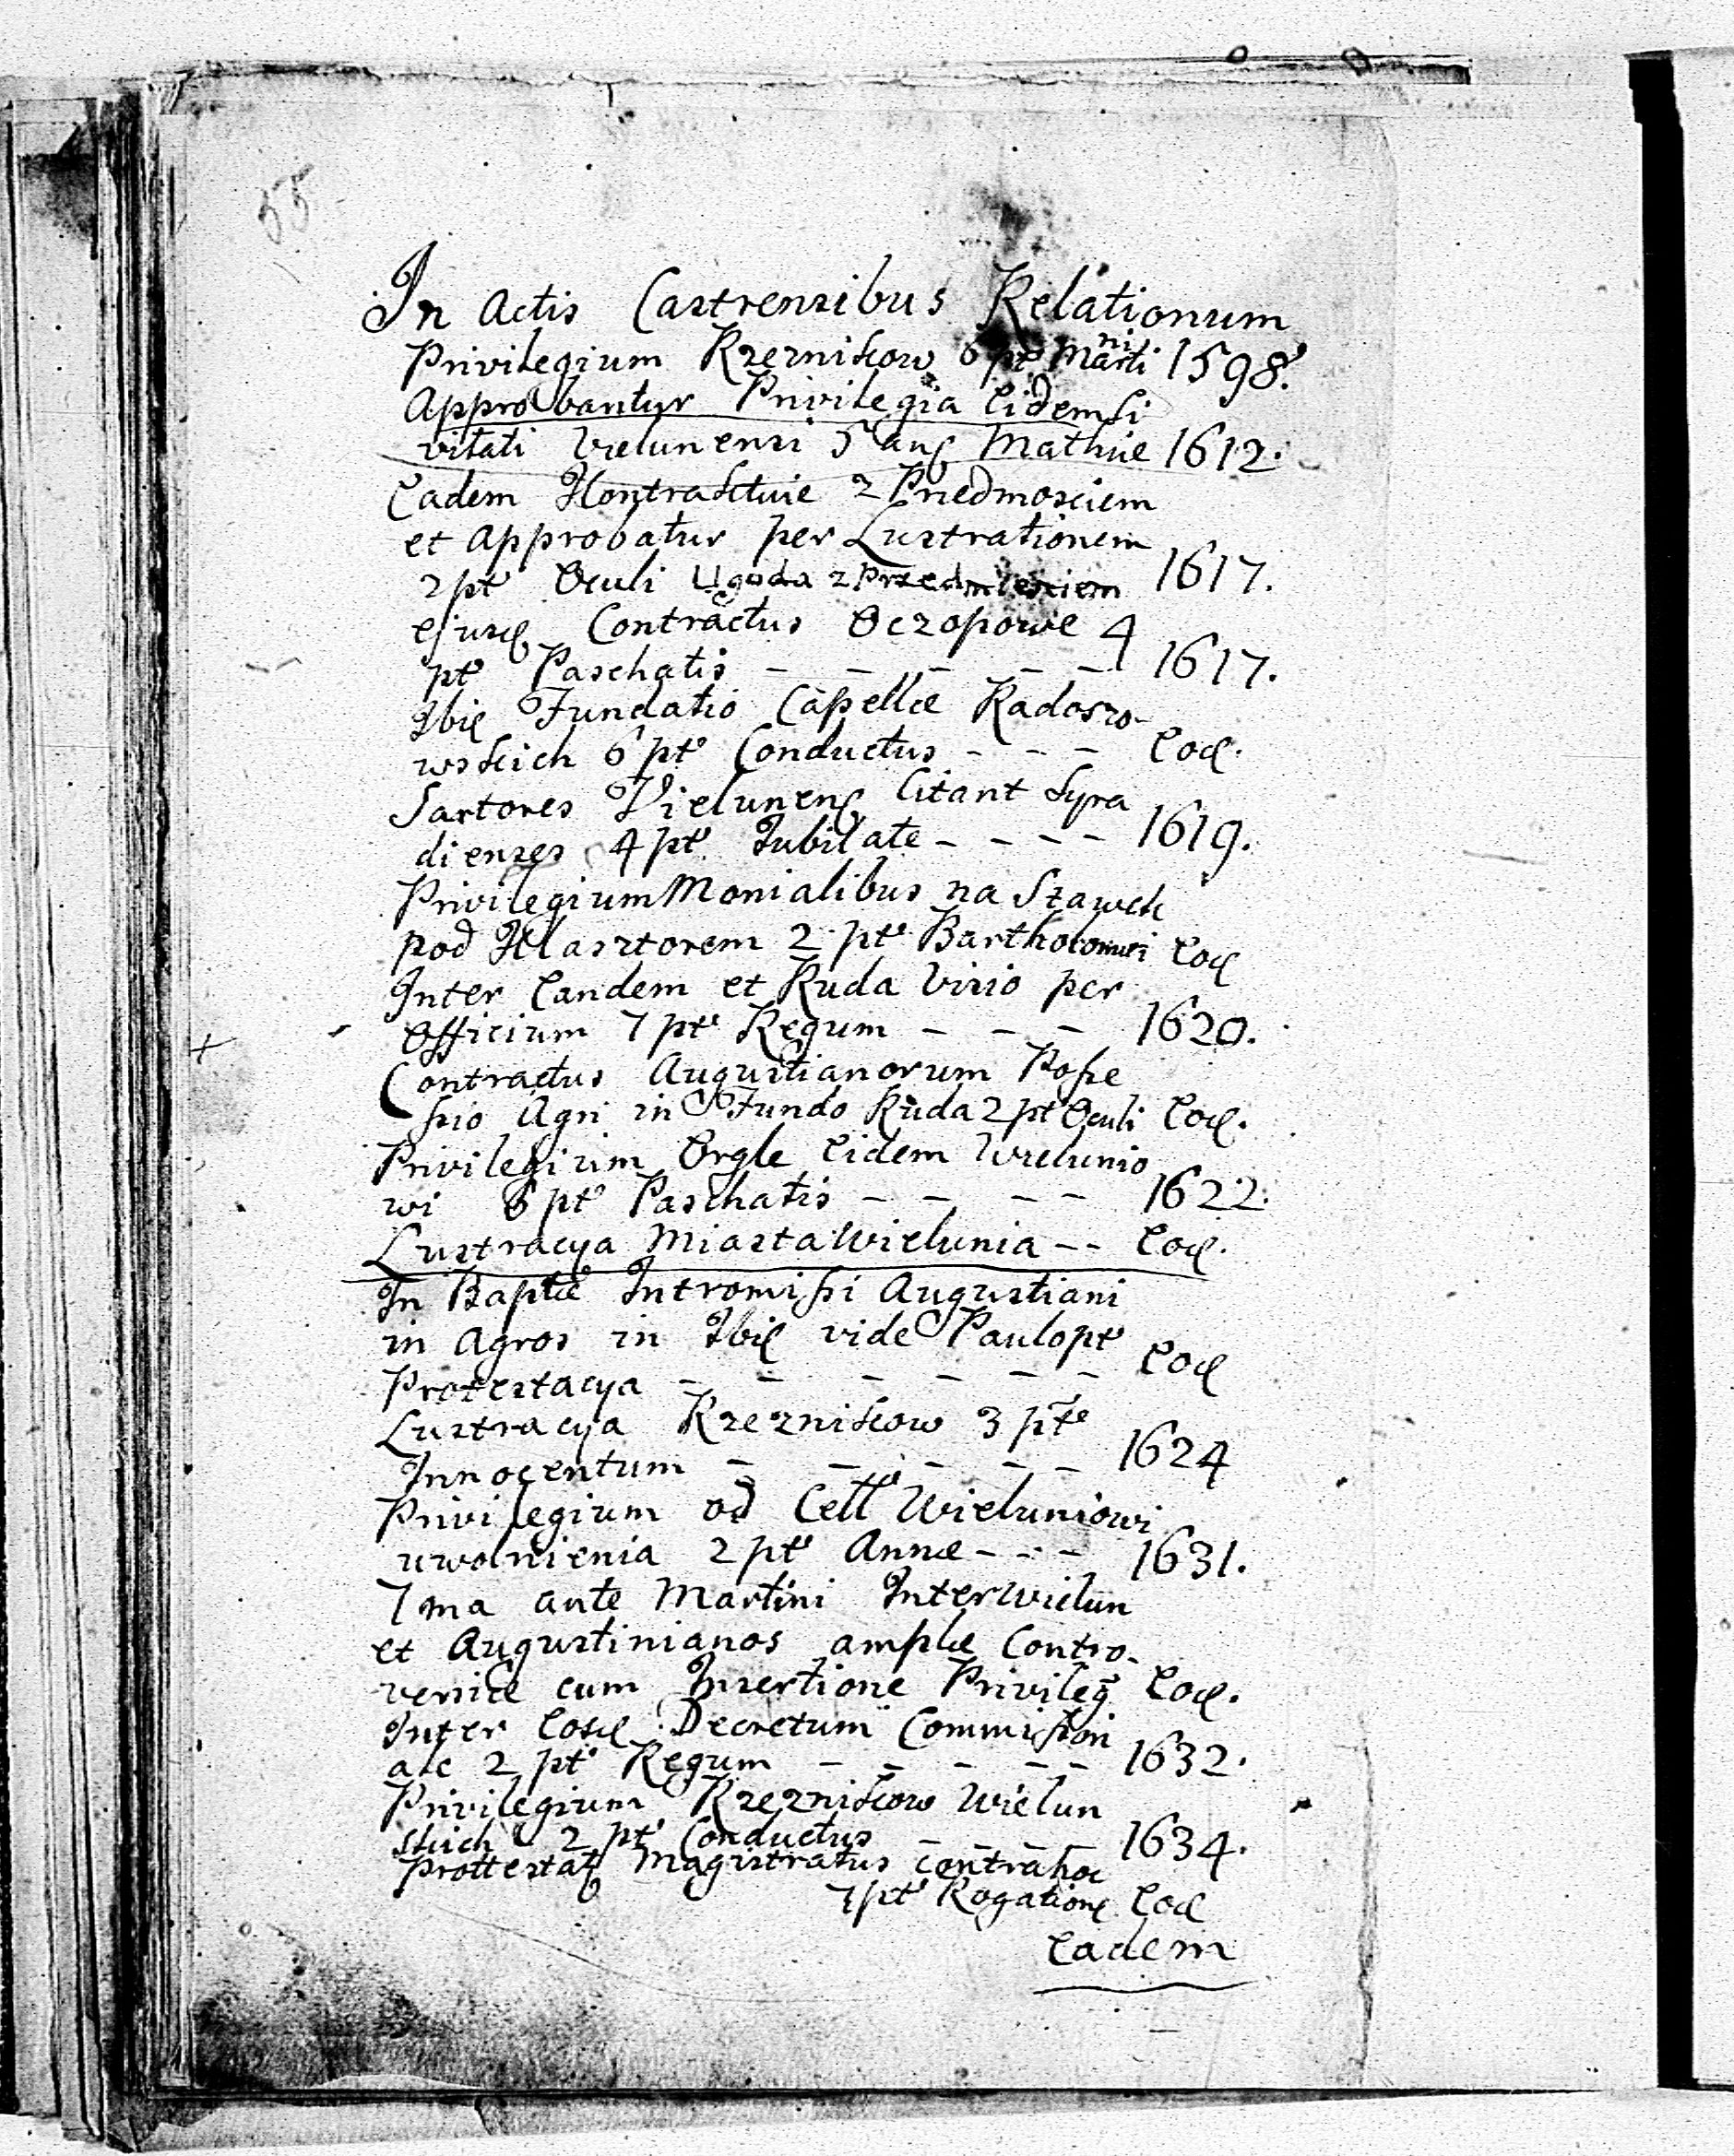 55
In Actis Castrensibus Relationum
Privilegium Rzeznikow 6 pt Martini 1598.
Approbantur Privilegia Eidem Ci
vitati Vielunensi 5 anę Mathiæ 1612.
Eadem Kontraktuie z Przedmosciem
et Approbatur per Lustrationem
2 pt Oculi Ugoda z Przedmiesciem 1617.
ejusę Contractus Oczopowe 4
pt Paschatis - - - - - 1617.
Ibię Fundatio Capellæ Radoszo-
wskich 6 pt Conductus - - - Eoę.
Sartores Vielunenę Citant Syra
dienses 4 pt Jubilate - - - - 1619.
Privilegium Monialibus na Stawek
pod Klasztorem 2 pt Bartholomæi Eoę
Inter Eandem et Ruda Visio per
Officium 7 pt Regum - - - 1620.
Contractus Augustianorum Posse
ssio Agri in Fundo Ruda 2 pt Oculi Eoę.
Privilegium Orgle Eidem Wielunio
wi 6 pt Paschatis - - - - 1622.
Lustracya Miasta Wielunia -- Eoę.
In Baptæ Intromissi Augustiani
in Agros in Ibię vide Paulo pt
Protestacya - - - - - - Eoę
Lustracya Rzeznikow 3 pt
Innocentum - - - - - 1624
Privilegium od Cełł Wieluniowi
uwolnienia 2 pt Annæ - - - 1631.
7ma ante Martini Inter Wielun
et Augustinianos amplæ Contro-
versiæ cum Insertione Privileg Eoę.
Inter Eosę Decretum Commissori
ale 2 pt Regum - - - - - 1632.
Privilegium Rzeznikow Wielun
skich 2 pt Conductus - - - - 1634.
Prottestatę Magistratus contra hoc
7 pt Rogationę Eoę
Eadem